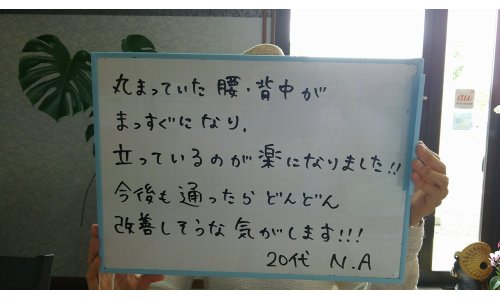 丸まっていた 腰・背中が
まっすぐになり、
立っているのが楽になりました!!
今後も通ったら どんどん
改善しそうな気がします!!!
20代 N.A
au